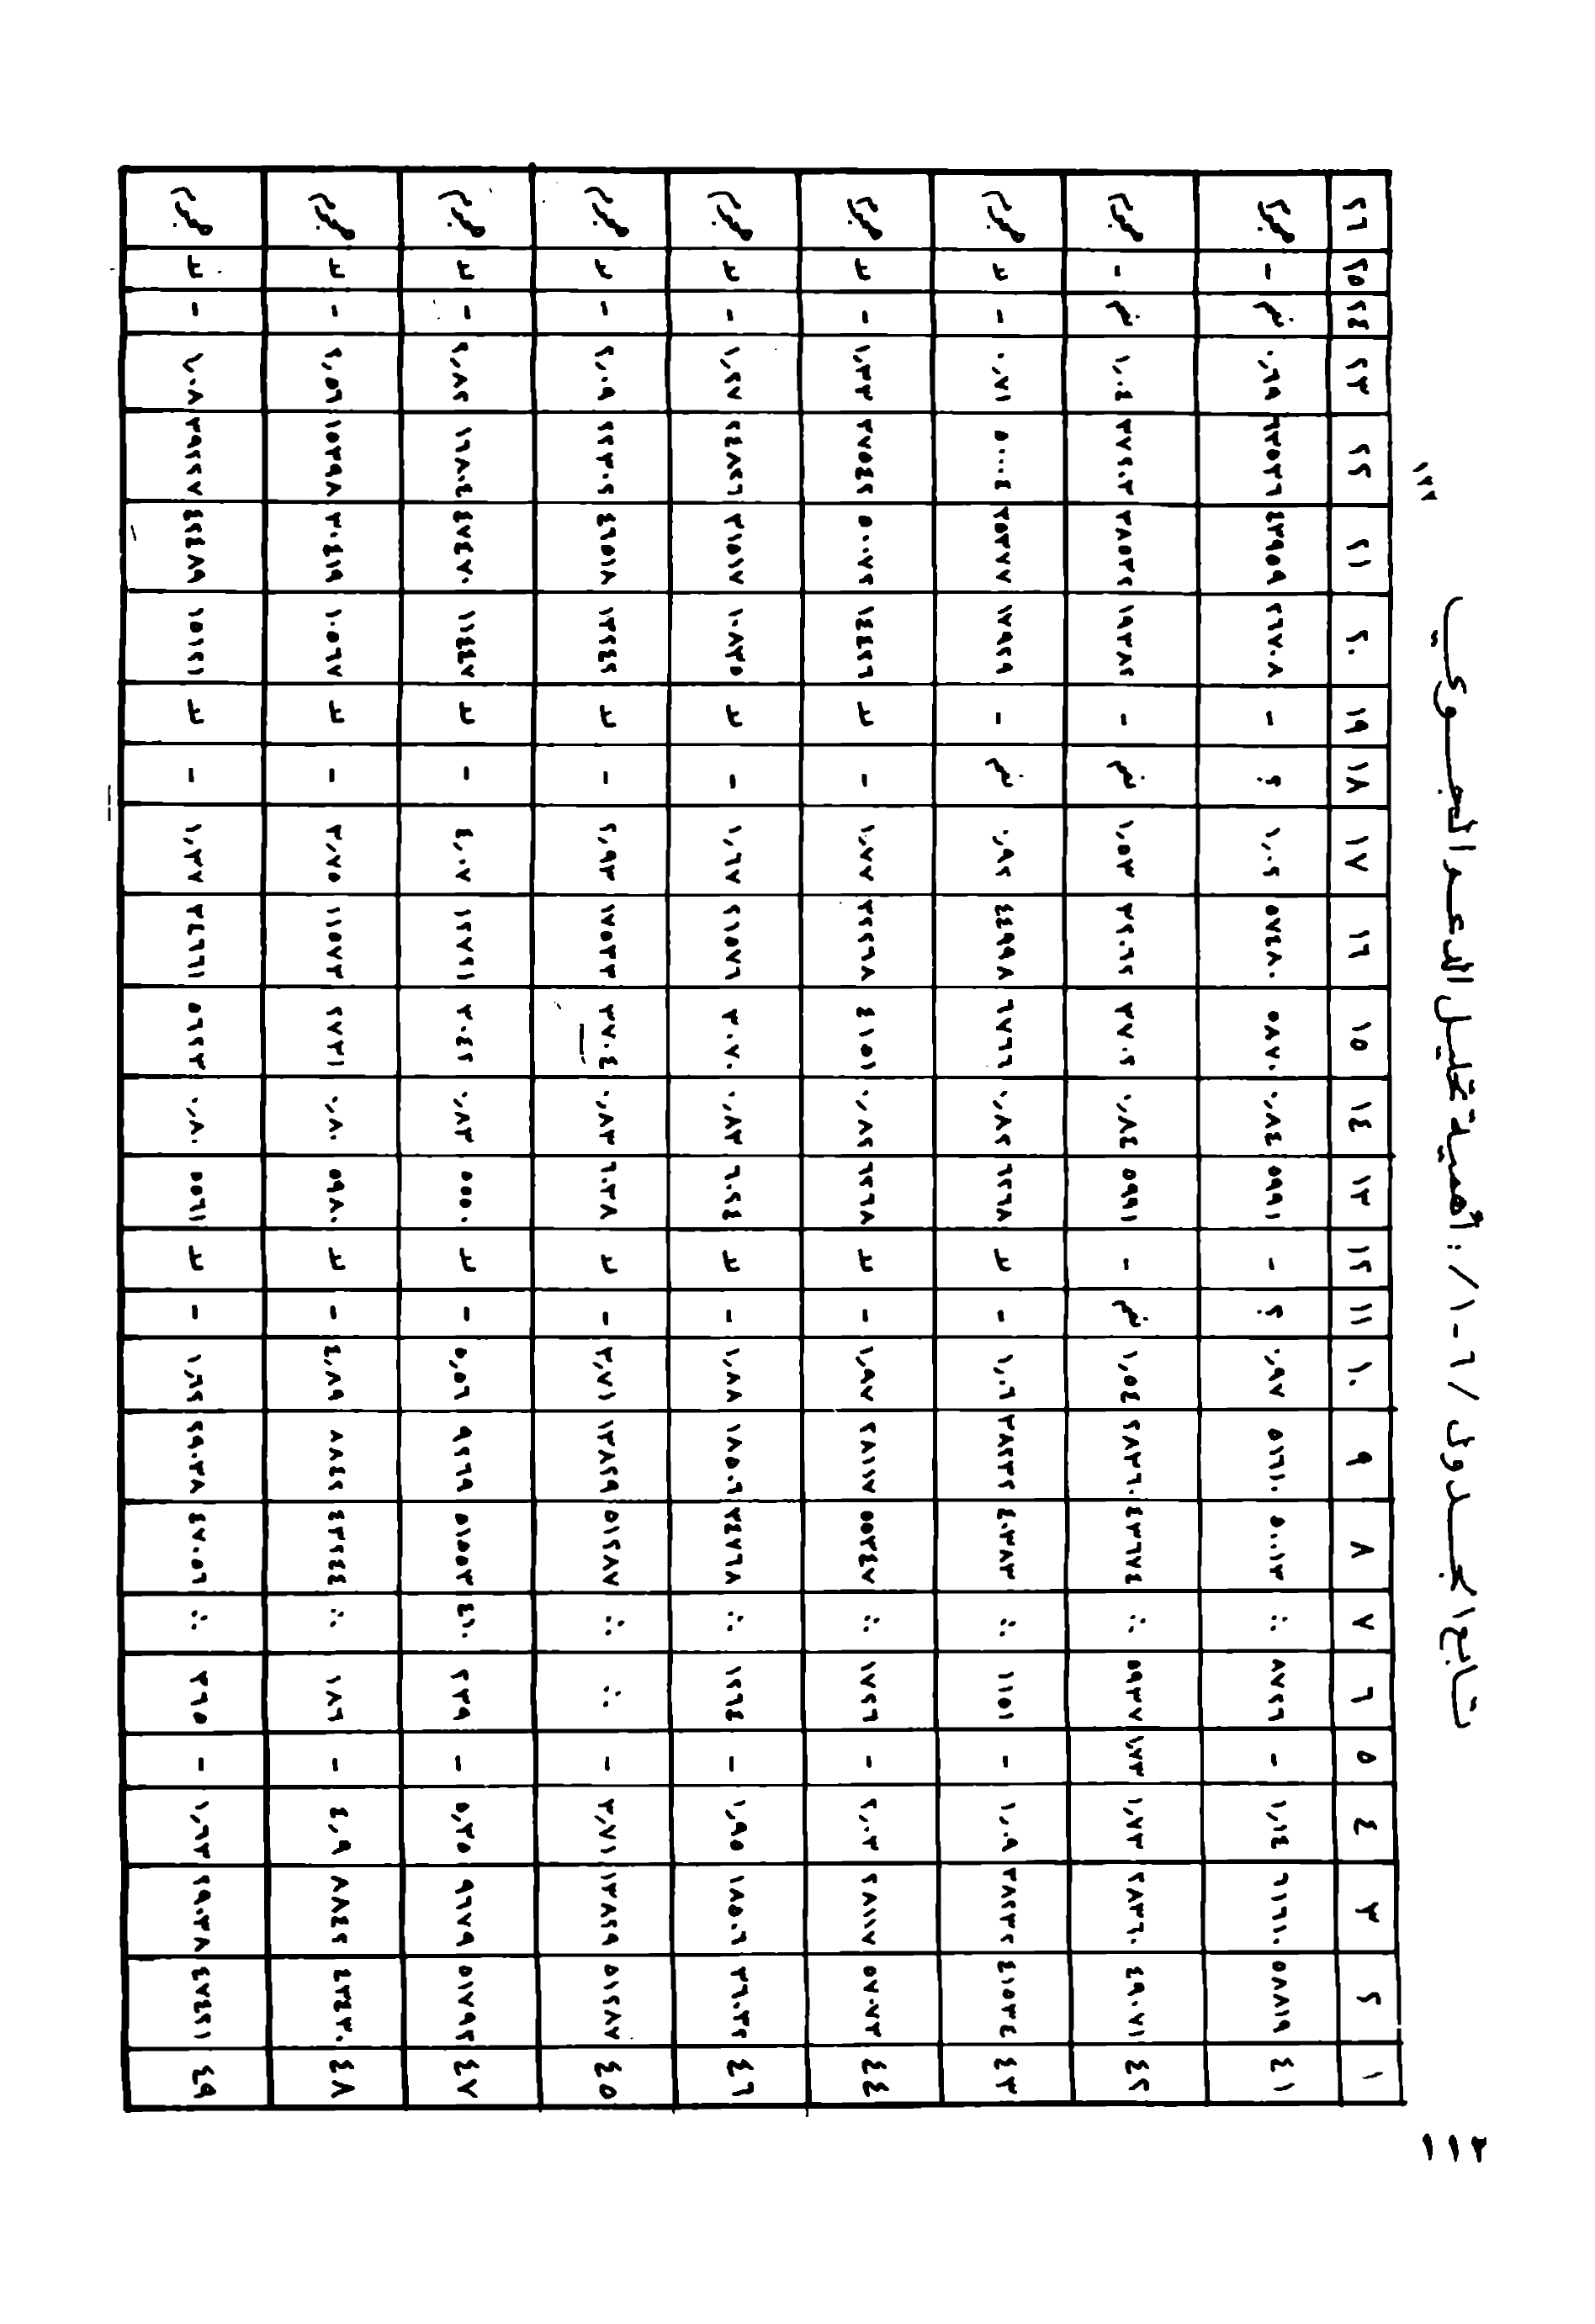 ١١٢
تابع الجدول /٦-١/: أهمية تحليل الدعم
١ ٢ ٣ ٤ ٥ ٦ ٧ ٨ ٩ ١٠ ١١ ١٢ ١٣ ١٤ ١٥ ١٦ ١٧ ١٨ ١٩ ٢٠ ٢١ ٢٢ ٢٣ ٢٤ ٢٥ ٢٦
٤١ ٥٨٨١٩ ٦١٦١٠ ١,١٤ - ٨٧٢٦ ∴ ٥٠٠١٣ ٥١٦١٠ ٠,٩٧ ؟ - ٥٩٩١ ٠,٨٤ ٥٨٧٠ ٥٧٤٨٠ ١,٠٢ ؟ - ٢٦٧٠٨ ٤٣٩٥٩ ٦٣٥٣٦ ٠,٦٩ -
٤٢ ٤٩٠٧١ ٢٨٣٦٠ ١,٧٣ ١,٧٣ ٥٩٣٧ ∴ ٤٣٦٧٤ ٢٨٣٦٠ ١,٥٤ - ٥٩٩١ ٠,٨٤ ٣٧٠٢ ٣٢٠٦٢ ١,٥٣ - ١٩٣٨٢ ٣٨٥٣٢ ٣٧٢٠٣ ١,٠٤ -
٤٣ ٤١٥٣٤ ٣٨٢٣٢ ١,٠٩ - ١١٥١ ∴ ٤٠٣٨٣ ٣٨٢٣٢ ١,٠٦ - ٦٢٦٨ ٠,٨٢ ٦٧٦٦ ٤٤٩٩٨ ٠,٩٢ - ١٢٩٢٩ ٣٥٣٧٧ ٥٠٠٠٤ ٠,٧١ -
٤٤ ٥٧٠٧٣ ٢٨١١٧ ٢,٠٣ - ١٧٢٦ ∴ ٥٥٣٤٧ ٢٨١١٧ ١,٩٧ - ٦٢٦٨ ٠,٨٢ ٤١٥١ ٣٢٢٦٨ ١,٧٧ - ١٤٤٢٦ ٥٠٠٧٢ ٣٧٥٤٢ ١,٣٣ -
٤٦ ٣٦٠٣٢ ١٨٥٠٦ ١,٩٥ - ١٢٦٤ ∴ ٣٤٧٦٨ ١٨٥٠٦ ١,٨٨ - ٦٠٢٤ ٠,٨٣ ٣٠٧٠ ٢١٥٧٦ ١,٦٧ - ١٠٨٣٥ ٣١٥١٧ ٢٤٨٢٦ ١,٢٧ -
٤٥ ٥١٢٨٧ ١٣٨٢٩ ٣,٧١ - ∴ ∴ ٥١٢٨٧ ١٣٨٢٩ ٣,٧١ - ٦٠٣٨ ٠,٨٣ ٣٧٠٤ ١٧٥٣٣ ٢,٩٣ - ١٣٢٤٢ ٤٦٥١٨ ٢٢٣٠٢ ٢,٠٩ -
٤٧ ٥١٧٩٢ ٩٦٧٩ ٥,٣٥ - ٢٣٩ ٤١٠ ٥١٥٥٣ ٩٢٦٩ ٥,٥٦ - ٥٥٥٠ ٠,٨٣ ٣٠٤٢ ١٢٧٢١ ٤,٠٧ - ١١٤٤٧ ٤٧٤٧٠ ١٦٨٠٤ ٢,٨٢ -
٤٨ ٤٣٤٣٠ ٨٨٤٢ ٤,٩ - ١٨٦ ∴ ٤٣٢٤٤ ٨٨٤٢ ٤,٨٩ - ٥٩٨٠ ٠,٨٠ ٢٧٣١ ١١٥٧٣ ٣,٧٥ - ١٠٥٦٧ ٣٠٤١٩ ١٥٣٩٨ ٢,٥٦ -
٤٩ ٤٧٤٢١ ٢٩٠٣٨ ١,٦٣ - ٣٦٥ ∴ ٤٧٠٥٦ ٢٩٠٣٨ ١,٦٢ - ٥٥٦١ ٠,٨٠ ٥٦٢٣ ٣٤٦٦١ ١,٣٧ - ١٥١٢١ ٤٢٤٨٩ ٣٩٢٢٧ ١,٠٨ -